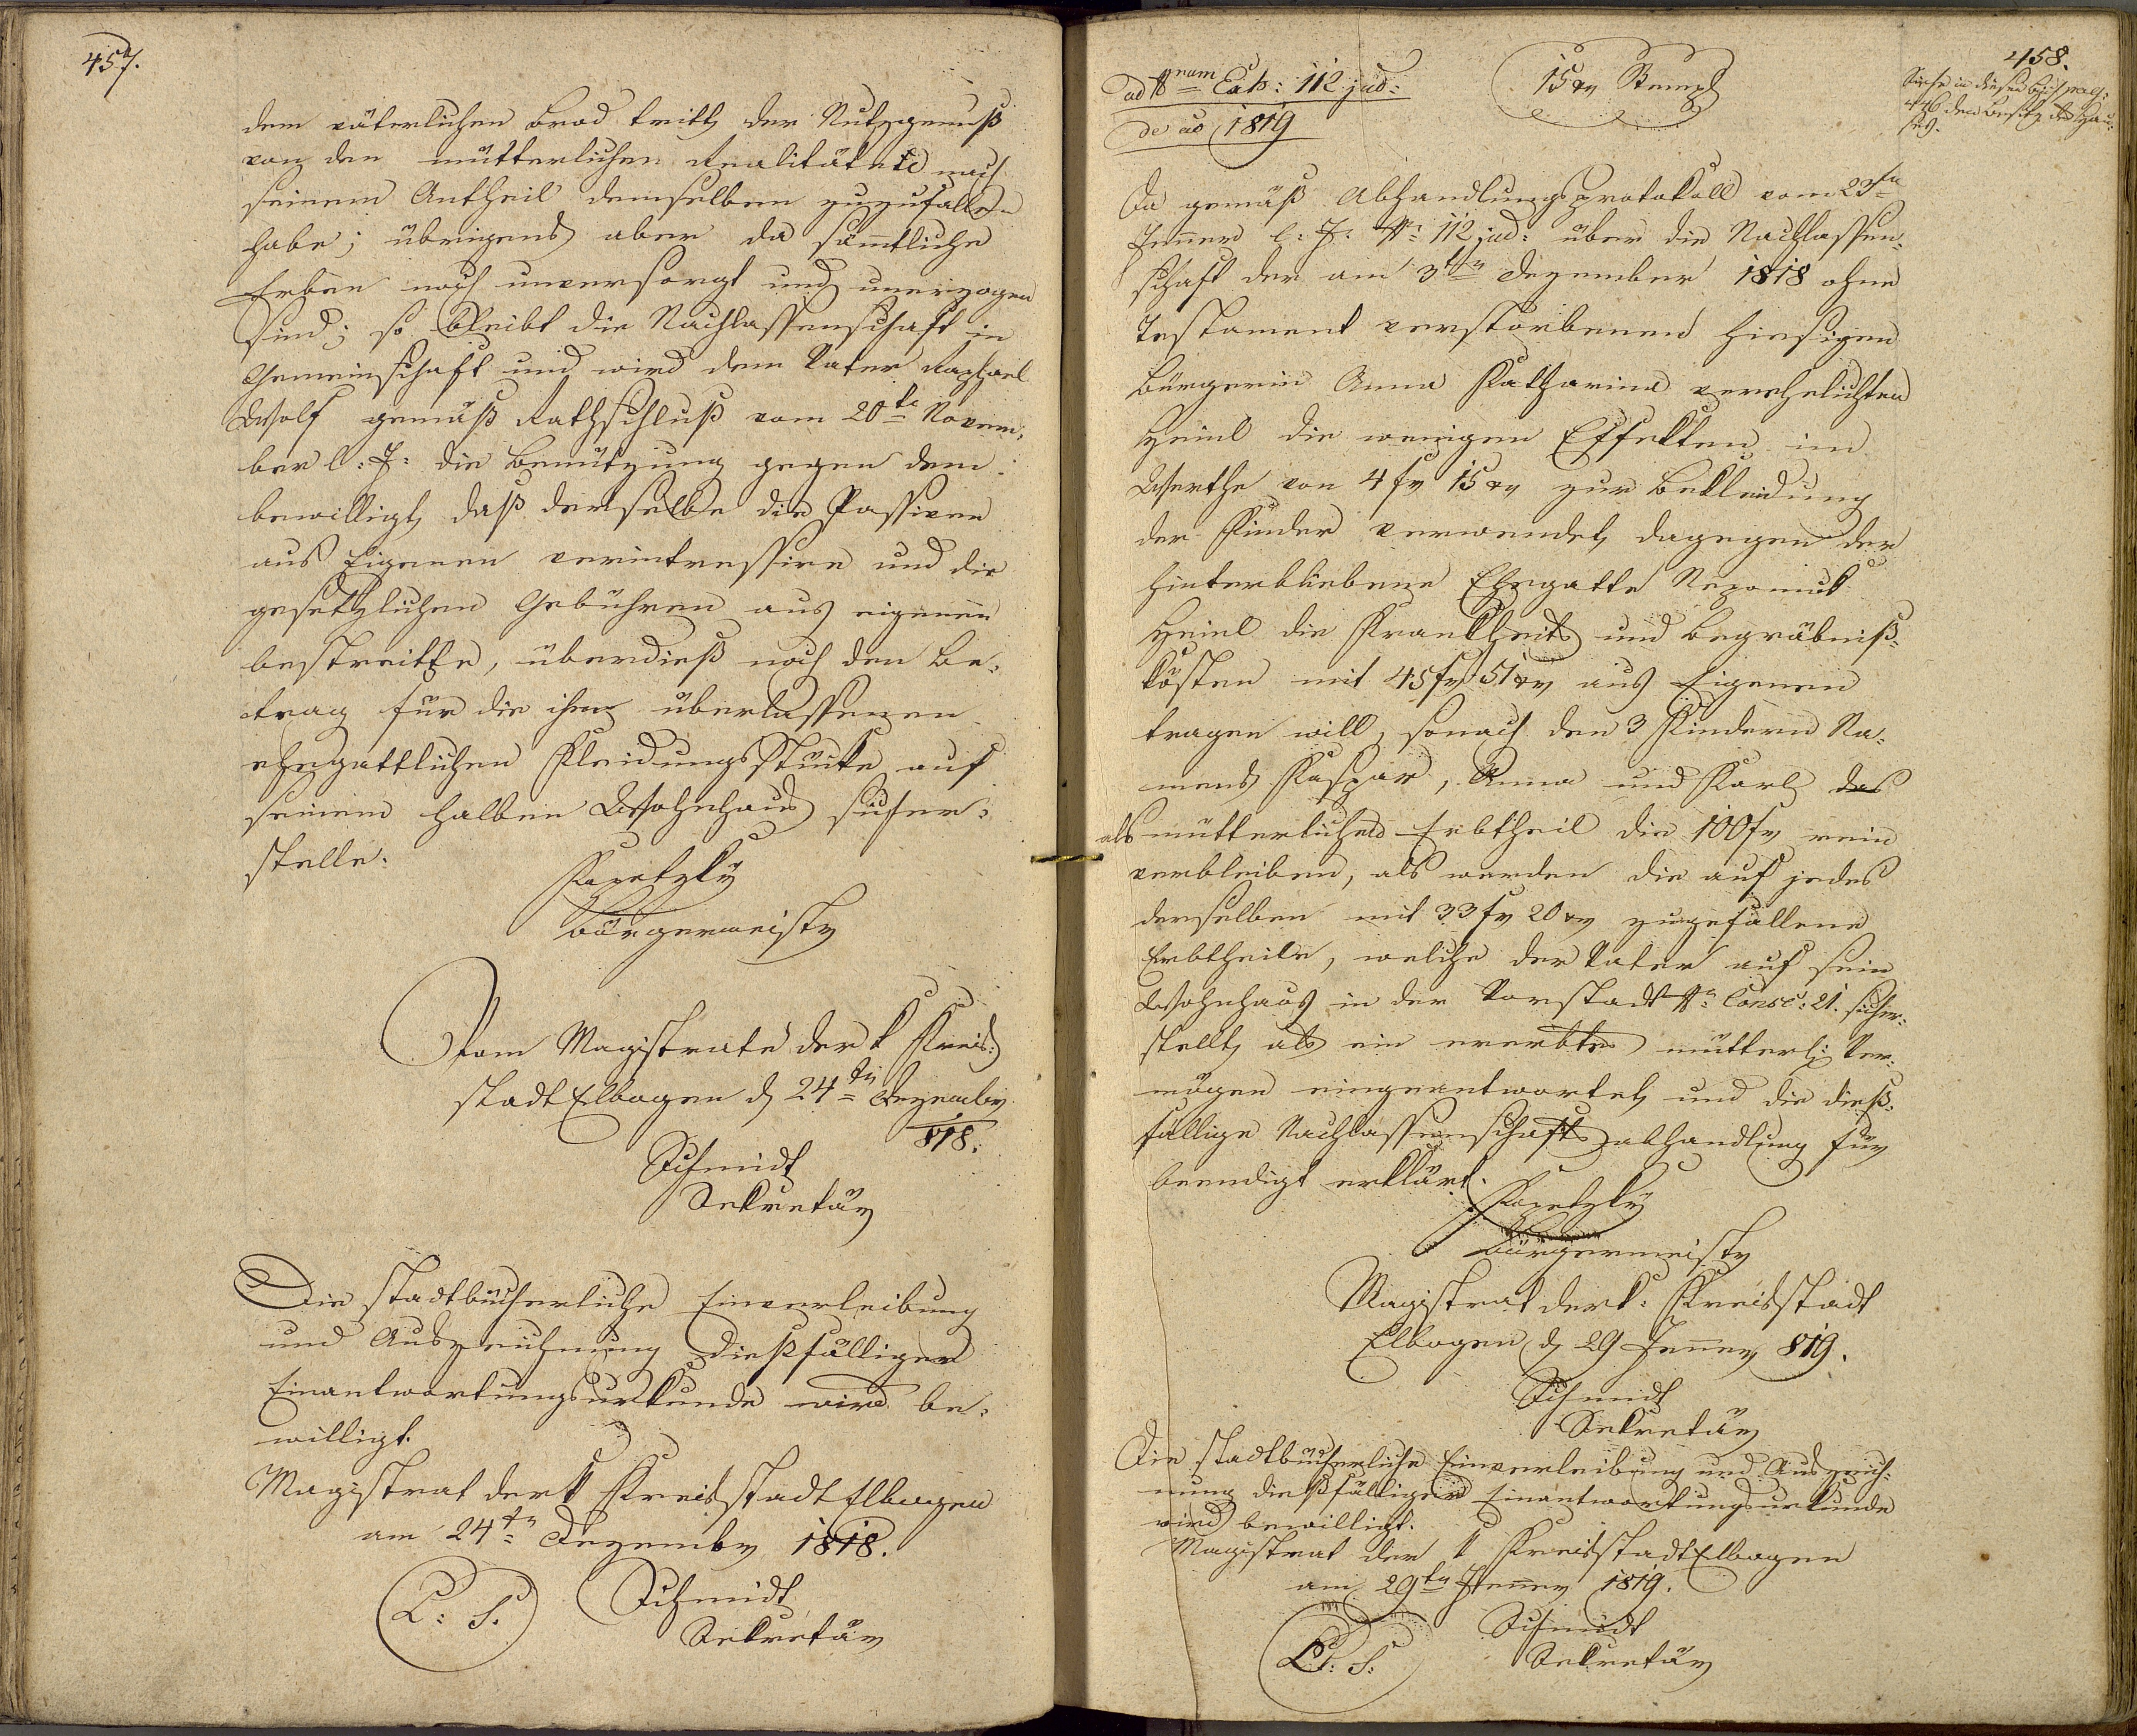 457.
dem väterlichen Brod tritt, der Nutzgenuß
von den mütterlichen Realitäten nach
seinem Antheil demselben zuzufallen
habe; übrigens aber da sämtliche
Erben noch unversorgt und unerzogen
sind; so bleibt die Nachlassenschaft in
Gemeinschaft und wird dem Vater Raphael
Wolf gemäß Rathschluß vom 20te Novem-
ber l: J: die Benützung gegen dem
bewilligt, daß derselbe die Passiven
aus Eigenen verintressire und die
gesetzlichen Gebühren aus eigenen
bestreitte, überdieß noch den Be-
trag für die ihm überlassenen
ehegattlichen Kleidungsstücke auf
seinem halben Wohnhaus sicher-
stelle.
Bürgermeister
Vom Magistrate der k Kreis-
stadt Elbogen d 24ten Dezember
818.
Schmidt
Sekretär
Die stadtbücherliche Einverleibung
und Auszeichnung dießfälliger
Einantwortungsurkunde wird be-
willigt.
Magistrat der k Kreisstadt Elbogen
am 24ten Dezember 1818.
L: S. Schmidt
Sekretär
458.
ad Nrum Exh: 112 jud:
de ao 1819
15 xr Stempl
Siehe in diesem Buch pag:
476 den Besitz des Hau-
ses.
Da gemäß Abhandlungsprotokoll vom 23ten
Jenner l: J: Nr: 112 jud: über die Nachlassen-
schaft der am 3ten Dezember 1818 ohne
Testament verstorbenen hiesigen
Bürgerin Anna Katharina verehelichten
Heinl die wenigen Effekten im
Werthe von 4 fr 15 xr zur Bekleidung
der Kinder verwendet, dagegen der
hinterbliebene Ehegatte Nepomuk
Heinl die Krankheits und Begräbniß-
kosten mit 45 fr 51 xr aus Eigenen
tragen will, sonach den 3 Kindern Na-
mens Kaspar, Anna und Karl das
als mütterliches Erbtheil die 100 fr rein
verbleiben, als werden die auf jedes
derselben mit 33 fr 20 xr zugefallene
Erbtheile, welche der Vater auf sein
Wohnhaus in der Vorstadt Nr: Consc: 21. sicher-
stellt, als ein ererbtes mütterl: Ver-
mögen eingeantwortet, und die dieß-
fällige Nachlassenschaftsabhandlung für
beendigt erklärt.
Bürgermeister
Magistrat der k: Kreisstadt
Elbogen d 29 Jenner 819.
Schmidt
Sekretär
Die stadtbücherliche Einverleibung und Auszeich-
nung dießfälliger Einantwortungsurkunde
wird bewilligt.
Magistrat der k Kreisstadt Elbogen
am 29ten Jenner 1819.
L: S: Schmidt
Sekretär